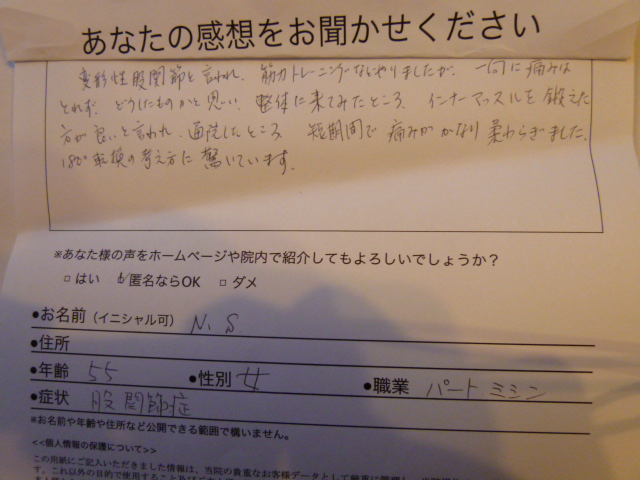 あなたの感想をお聞かせください
変形性股関節と言われ、筋力トレーニングなどやりましたが、一向に痛みは
とれず、どうしたものかと思い、整体に来てみたところ、インナーマッスルを鍛えた
方が良いと言われ、通院したところ 短期間で痛みがかなり柔わらぎました。
180°転換の考え方に驚いています。
※あなた様の声をホームページや院内で紹介してもよろしいでしょうか？
□ はい □ 匿名ならOK □ ダメ
●お名前（イニシャル可） N.S
●住所
●年齢 55 ●性別 女 ●職業 パート.ミシン
●症状 股関節症
※お名前や年齢や住所など公開できる範囲で構いません。
<<個人情報の保護について>>
この用紙にご記入いただきました情報は、当院の貴重なお客様データとして厳重に管理し、
す。これ以外の目的で使用すること及び